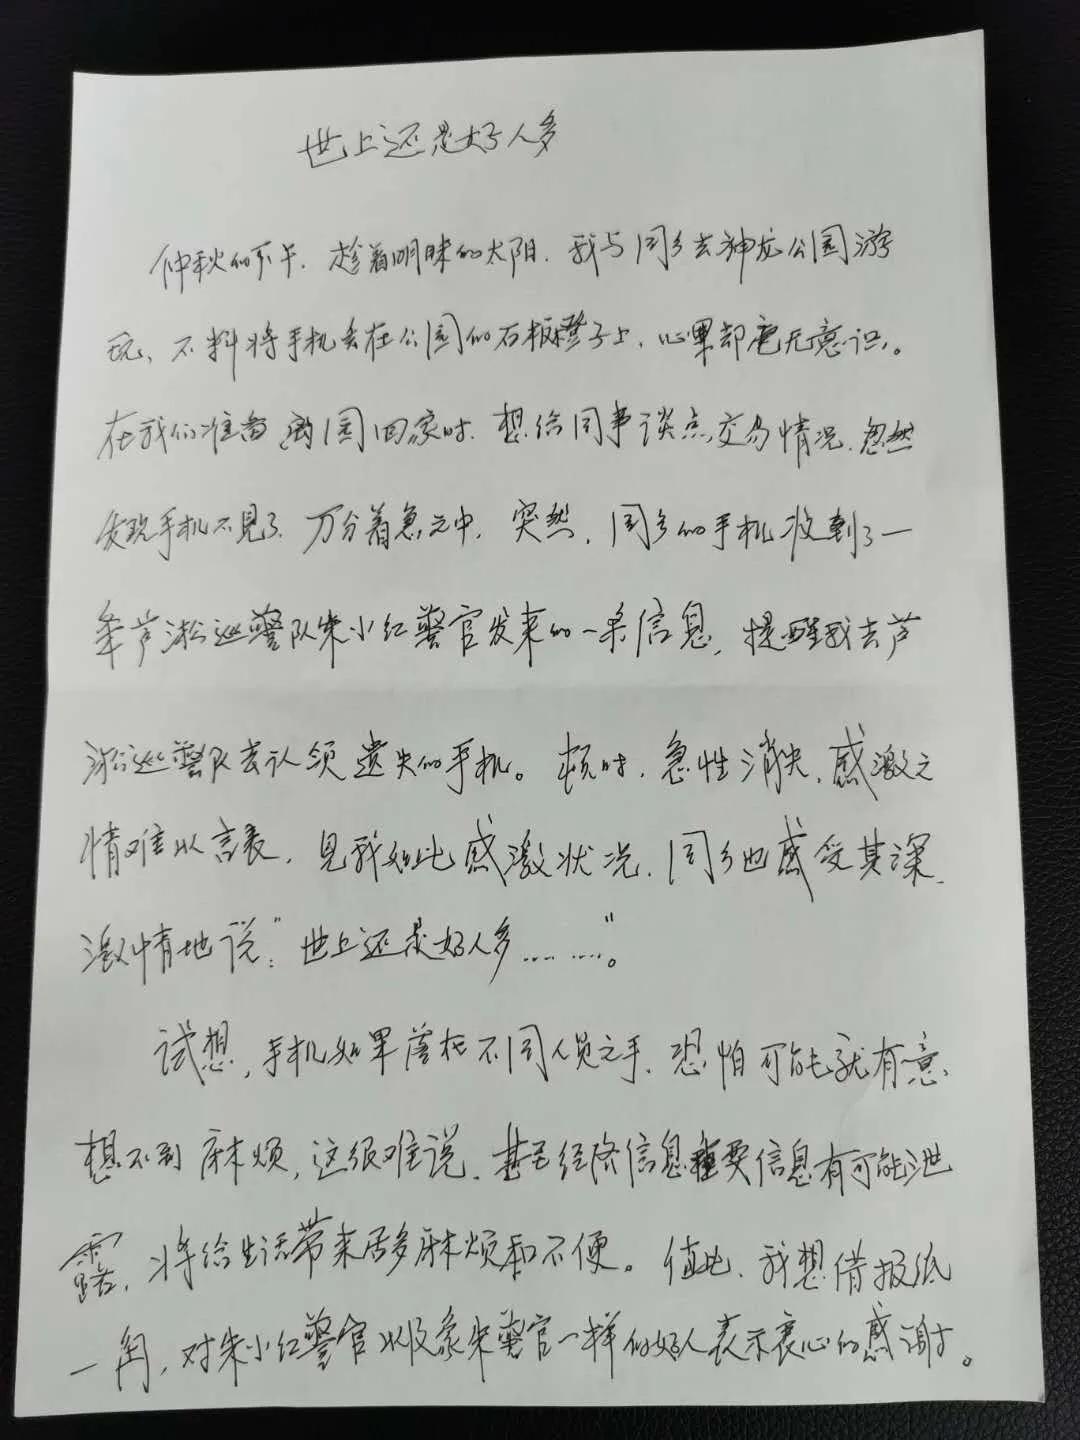 世上还是好人多
仲秋的下午，趁着明眛的太阳，我与同乡去神龙公园游
玩，不料将手机丢在公园的石板橙子上，心里却毫无意识。
在我们准备离园回家时，想给同事谈点交易情况，忽然
发现手机不见了，万分着急之中，突然，同乡的手机收到了一
条芦淞巡警队朱小红警官发来的一条信息，提醒我去芦
淞巡警队去认领遗失的手机。顿时，急性消失，感激之
情难以言表，见我如此感激状况，同乡也感受其深，
激情地说：“世上还是好人多………”。
试想，手机如果落在不同人员之手，恐怕可能就有意
想不到麻烦，这很难说，甚至经济信息重要信息有可能泄
露，将给生活带来居多麻烦和不便。值此，我想借报纸
一角，对朱小红警官以及象朱警官一样的好人表示衷心的感谢。